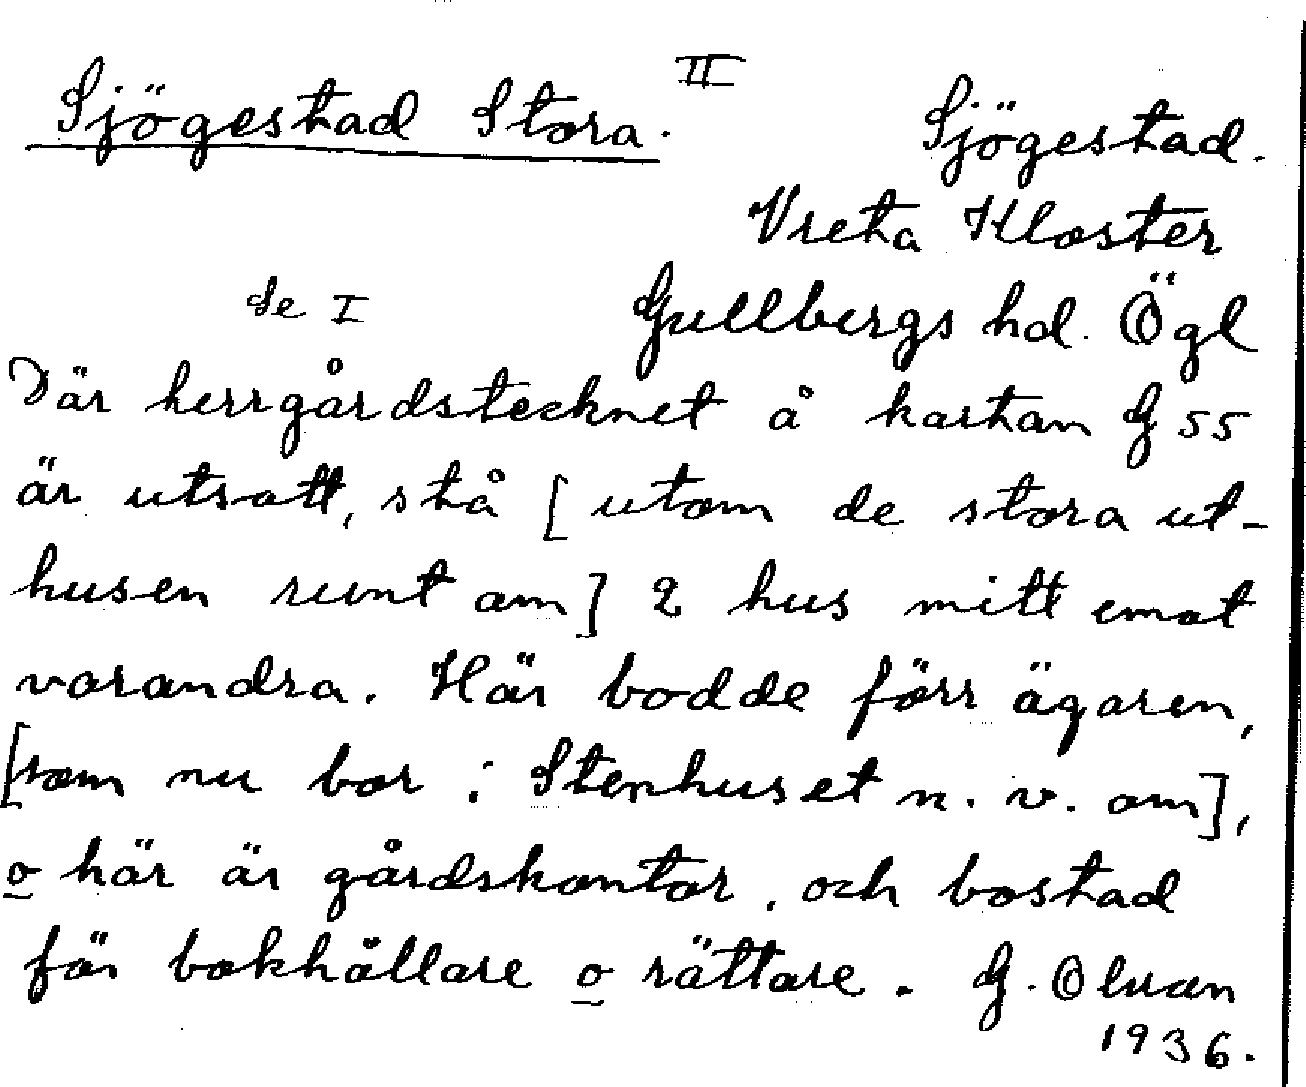 Sjögestad Stora. II
Sjögestad.
Vreta Kloster
se I
Gullbergs hd. Ögl
Där herrgårdstecknet å kartan G 55
är utsatt, stå [utom de stora ut-
husen runt om] 2 hus mitt emot
varandra. Här bodde förr ägaren,
[som nu bor i Stenhuset n. v. om],
o här är gårdskontor, och bostad
för bokhållare o rättare. G. Olson
1936.